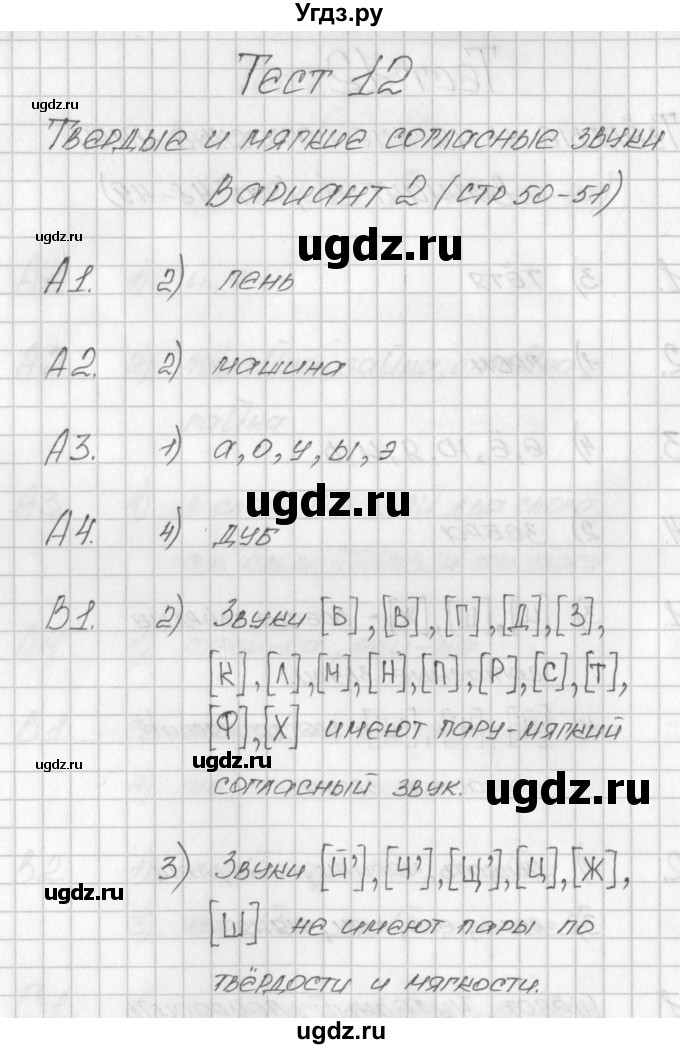 Угдз.ру
Тест 12
ugdz.ru
Твердые и мягкие согласные звуки
Вариант 2 (стр 50-51)
ugdz.ru
ugdz.ru
А1. 2) пень
А2. 2) машина
А3. 1) а, о, у, ы, э
ugdz.ru
ugdz.ru
А4. 4) дуб
В1. 2) Звуки [Б], [В], [Г], [Д], [З],
[К], [Л], [М], [Н], [П], [Р], [С], [Т],
[Ф], [Х] имеют пару-мягкий
ugdz.ru
согласный звук.
ugdz.ru
3) Звуки [Й'], [Ч'], [Щ'], [Ц], [Ж],
ugdz.ru
[Ш] не имеют пары по
твёрдости и мягкости.
ugdz.ru